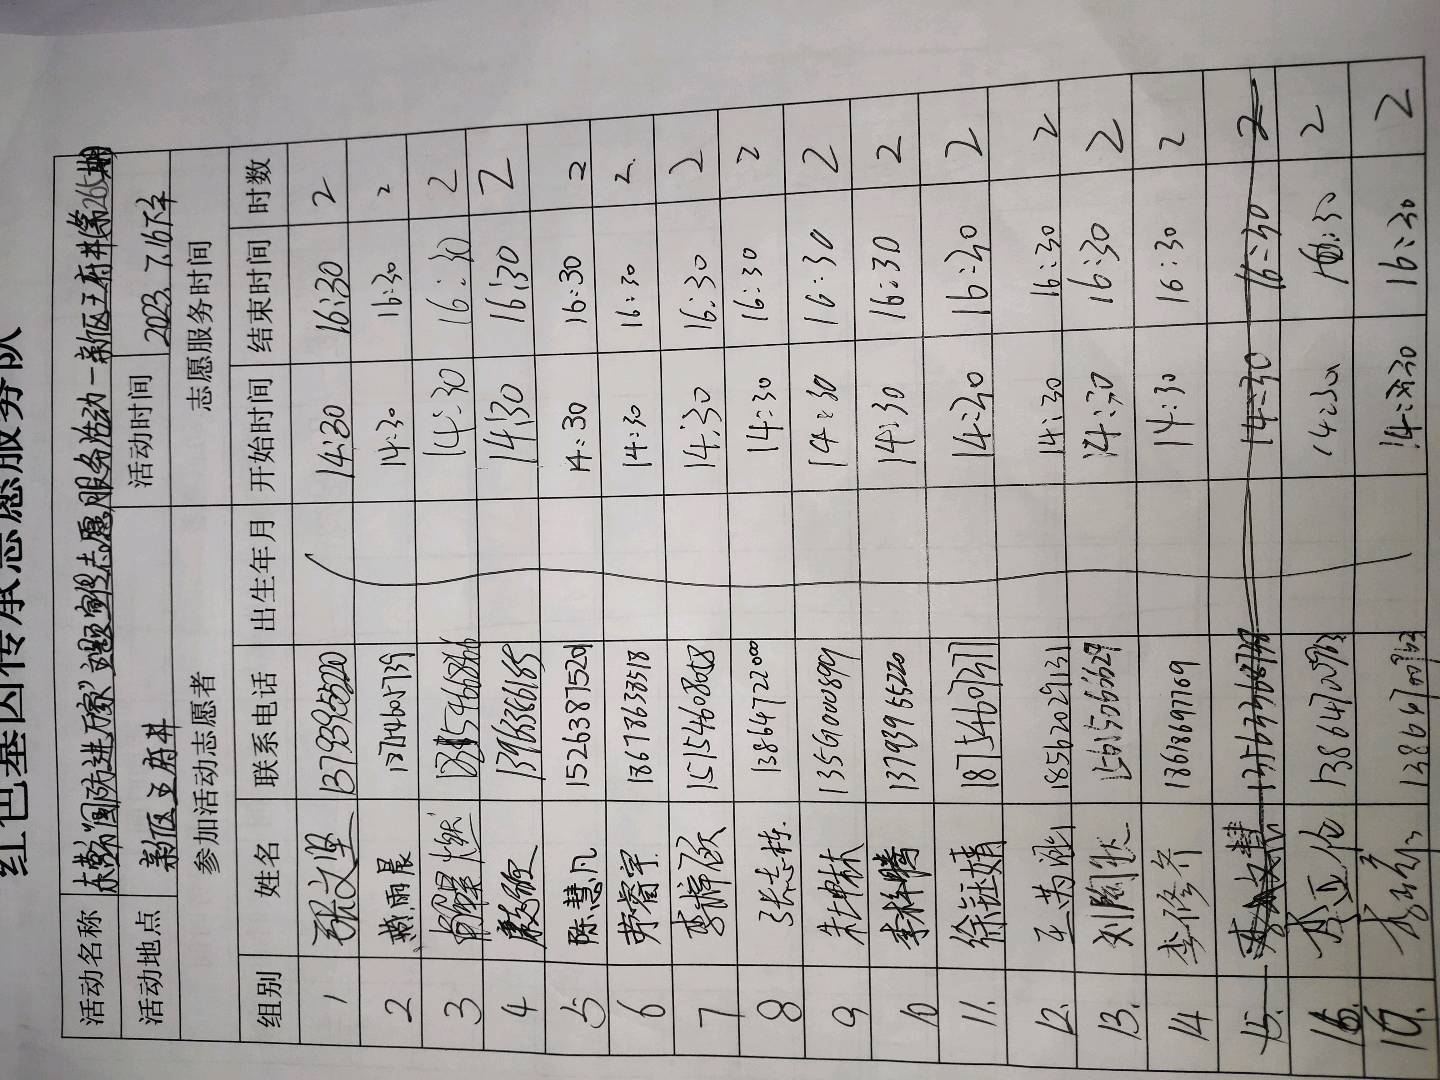 红色基因传承志愿服务队
活动名称 “国防进万家”志愿服务活动—新区王府井(第26期)
活动地点 新区王府井 活动时间 2023.7.16下午
参加活动志愿者 志愿服务时间
组别 姓名 联系电话 出生年月 开始时间 结束时间 时数
1 张文坚 13793955220 14:30 16:30 2
2 戴雨晨 14:30 16:30 2
3 14:30 16:30 2
4 13963636185 14:30 16:30 2
5 陈慧凡 15263387520 14:30 16:30 2
6 劳睿宇 18678638518 14:30 16:30 2
7 15154608058 14:30 16:30 2
8 张志栋 13864722000 14:30 16:30 2
9 13561000899 14:30 16:30 2
10 李梓腾 13793955220 14:30 16:30 2
11. 徐钲婧 18754607377 14:30 16:30 2
12. 18562029131 14:30 16:30 2
13. 14:30 16:30 2
14 李修齐 18618697769 14:30 16:30 2
15. 14:30 16:30 2
16. 李亚伦 14:30 :30 2
14:30 16:30 2